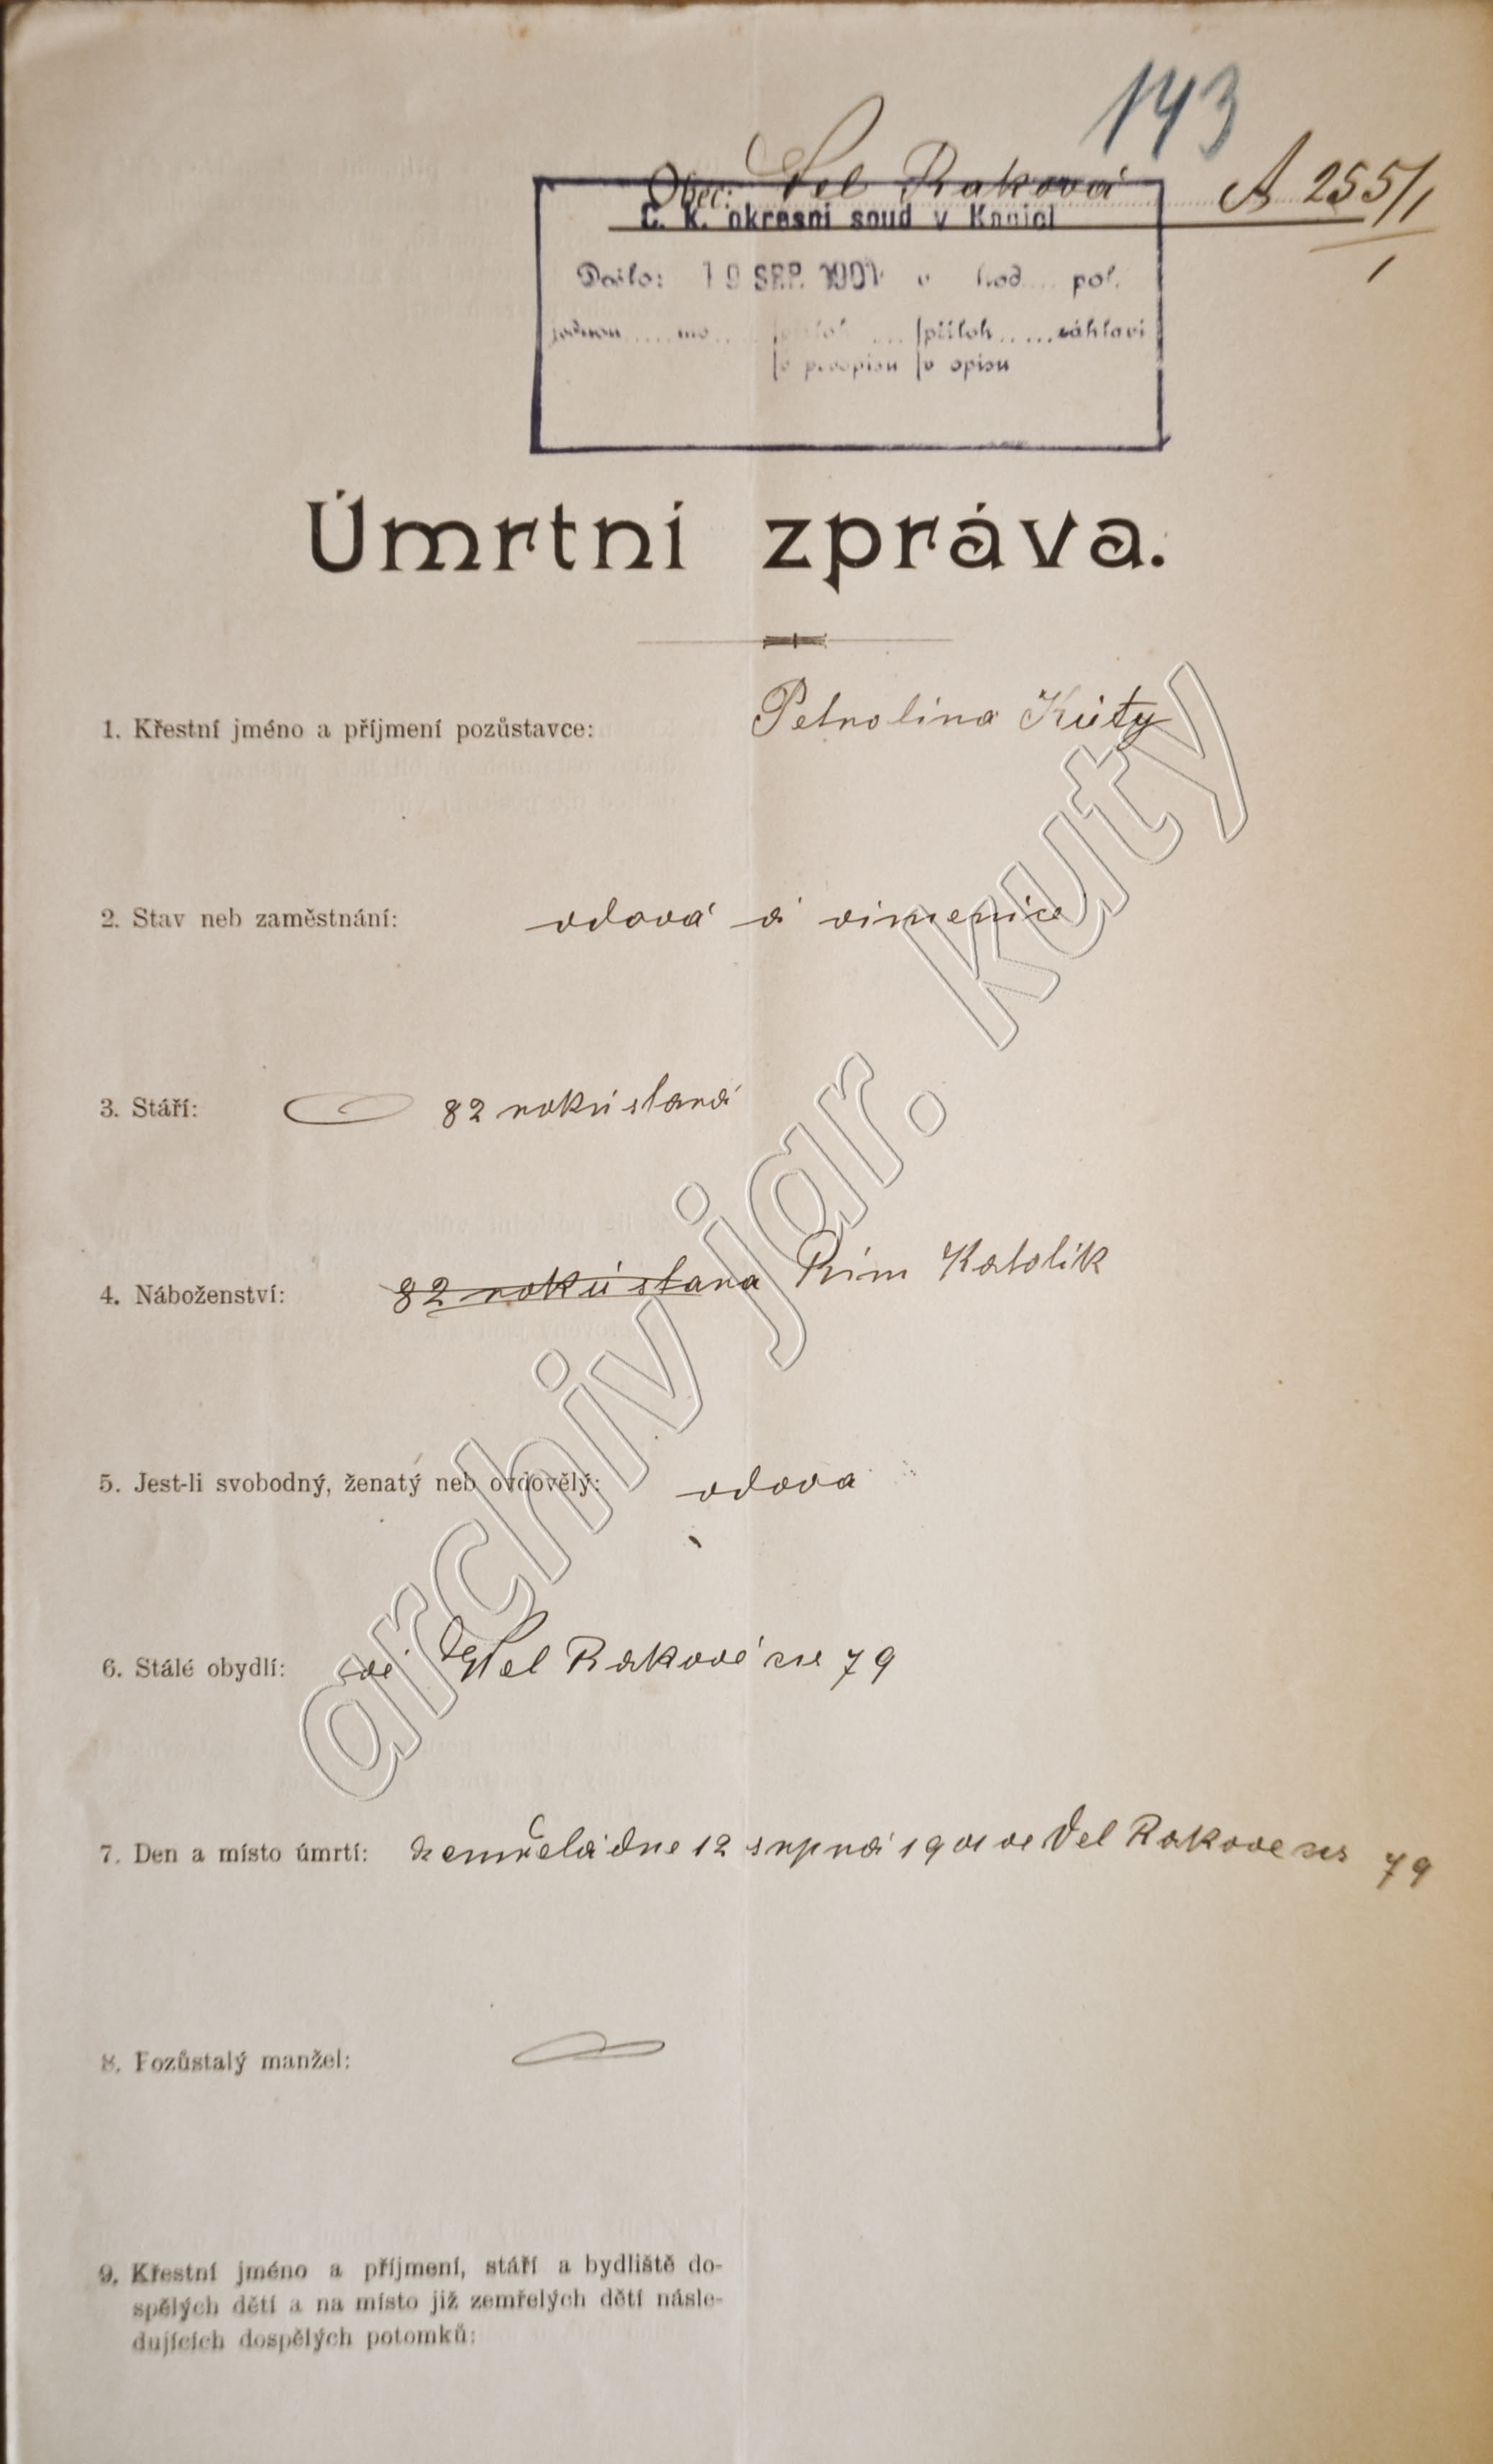 143
Obec: Vel Raková A 255/1
1
C. K. okresní soud v Konici
Došlo: 19 SRP. 1901 v hod.... pol.
jednou.....mo..... příloh.....záhlaví
v prvopisu v opisu
Úmrtní zpráva.
1. Křestní jméno a příjmení pozůstavce: Petrolina Kúty
2. Stav neb zaměstnání: vdová á
3. Stáří: 82 rokú stará
4. Náboženství: 82 rokú stara Rím Katolík
5. Jest-li svobodný, ženatý neb ovdovělý: vdova
6. Stálé obydlí: ve Vel Rakové 79
7. Den a místo úmrtí: zemřela dne 12 srpná 1901 ve Vel Rakove 79
8. Pozůstalý manžel:
9. Křestní jméno a příjmení, stáří a bydliště do-
spělých dětí a na místo již zemřelých dětí násle-
dujících dospělých potomků:
archiv jar. kuty